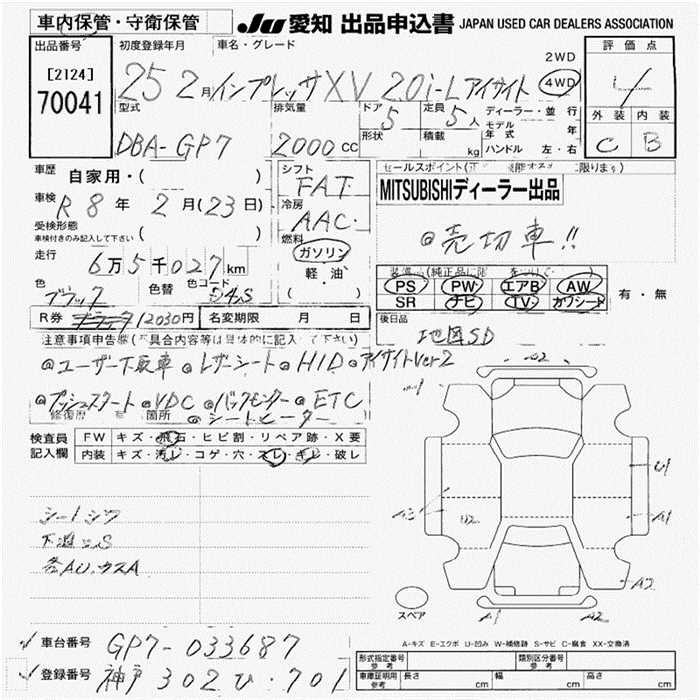 車内保管・守衛保管
JU 愛知 出品申込書 JAPAN USED CAR DEALERS ASSOCIATION
出品番号 初度登録年月 車名・グレード 評価点
[2124] 70041
25 2月 インプレッサXV 2.0i-L アイサイト 2WD 4WD 4
型式 排気量 ドア 5 定員 5人 ディーラー・並行
モデル年式 年
外装 内装
DBA-GP7 2000CC 形状 積載 kg ハンドル 左・右 C B
車歴 自家用・( )
シフト FAT
車検 R8年 2月(23日)
冷房 AAC
MITSUBISHIディーラー出品
受検形態
車検付きのみ記入して下さい ( )
燃料 ガソリン 軽・油 ( )
@売切車!!
走行 6万5千027km
色 ブラック 色替 色コード
PS PW エアB AW
SR ナビ TV カワシート 有・無
R券 12030円 名変期限 月 日
後日品 地図SD
注意事項申告欄
@ユーザー下取車 @レザーシート @HID @アイサイトver2
@プッシュスタート @VDC @バックモニター @ETC
修復歴 箇所 @シートヒーター
検査員記入欄
FW キズ・飛石・ヒビ割・リペア跡・X要
内装 キズ・汚レ・コゲ・穴・スレ・キレ・破レ
シートシワ
U1
A1
U2
A2
スペア
A1 A2
A-キズ E-エクボ U-凹み W-補修跡 S-サビ C-腐食 XX-交換済
車台番号 GP7-033687
登録番号 神戸 302 ひ・701
形式指定番号 参考 類別区分番号 参考
車庫証明用 参考 長さ cm 幅 cm 高さ cm